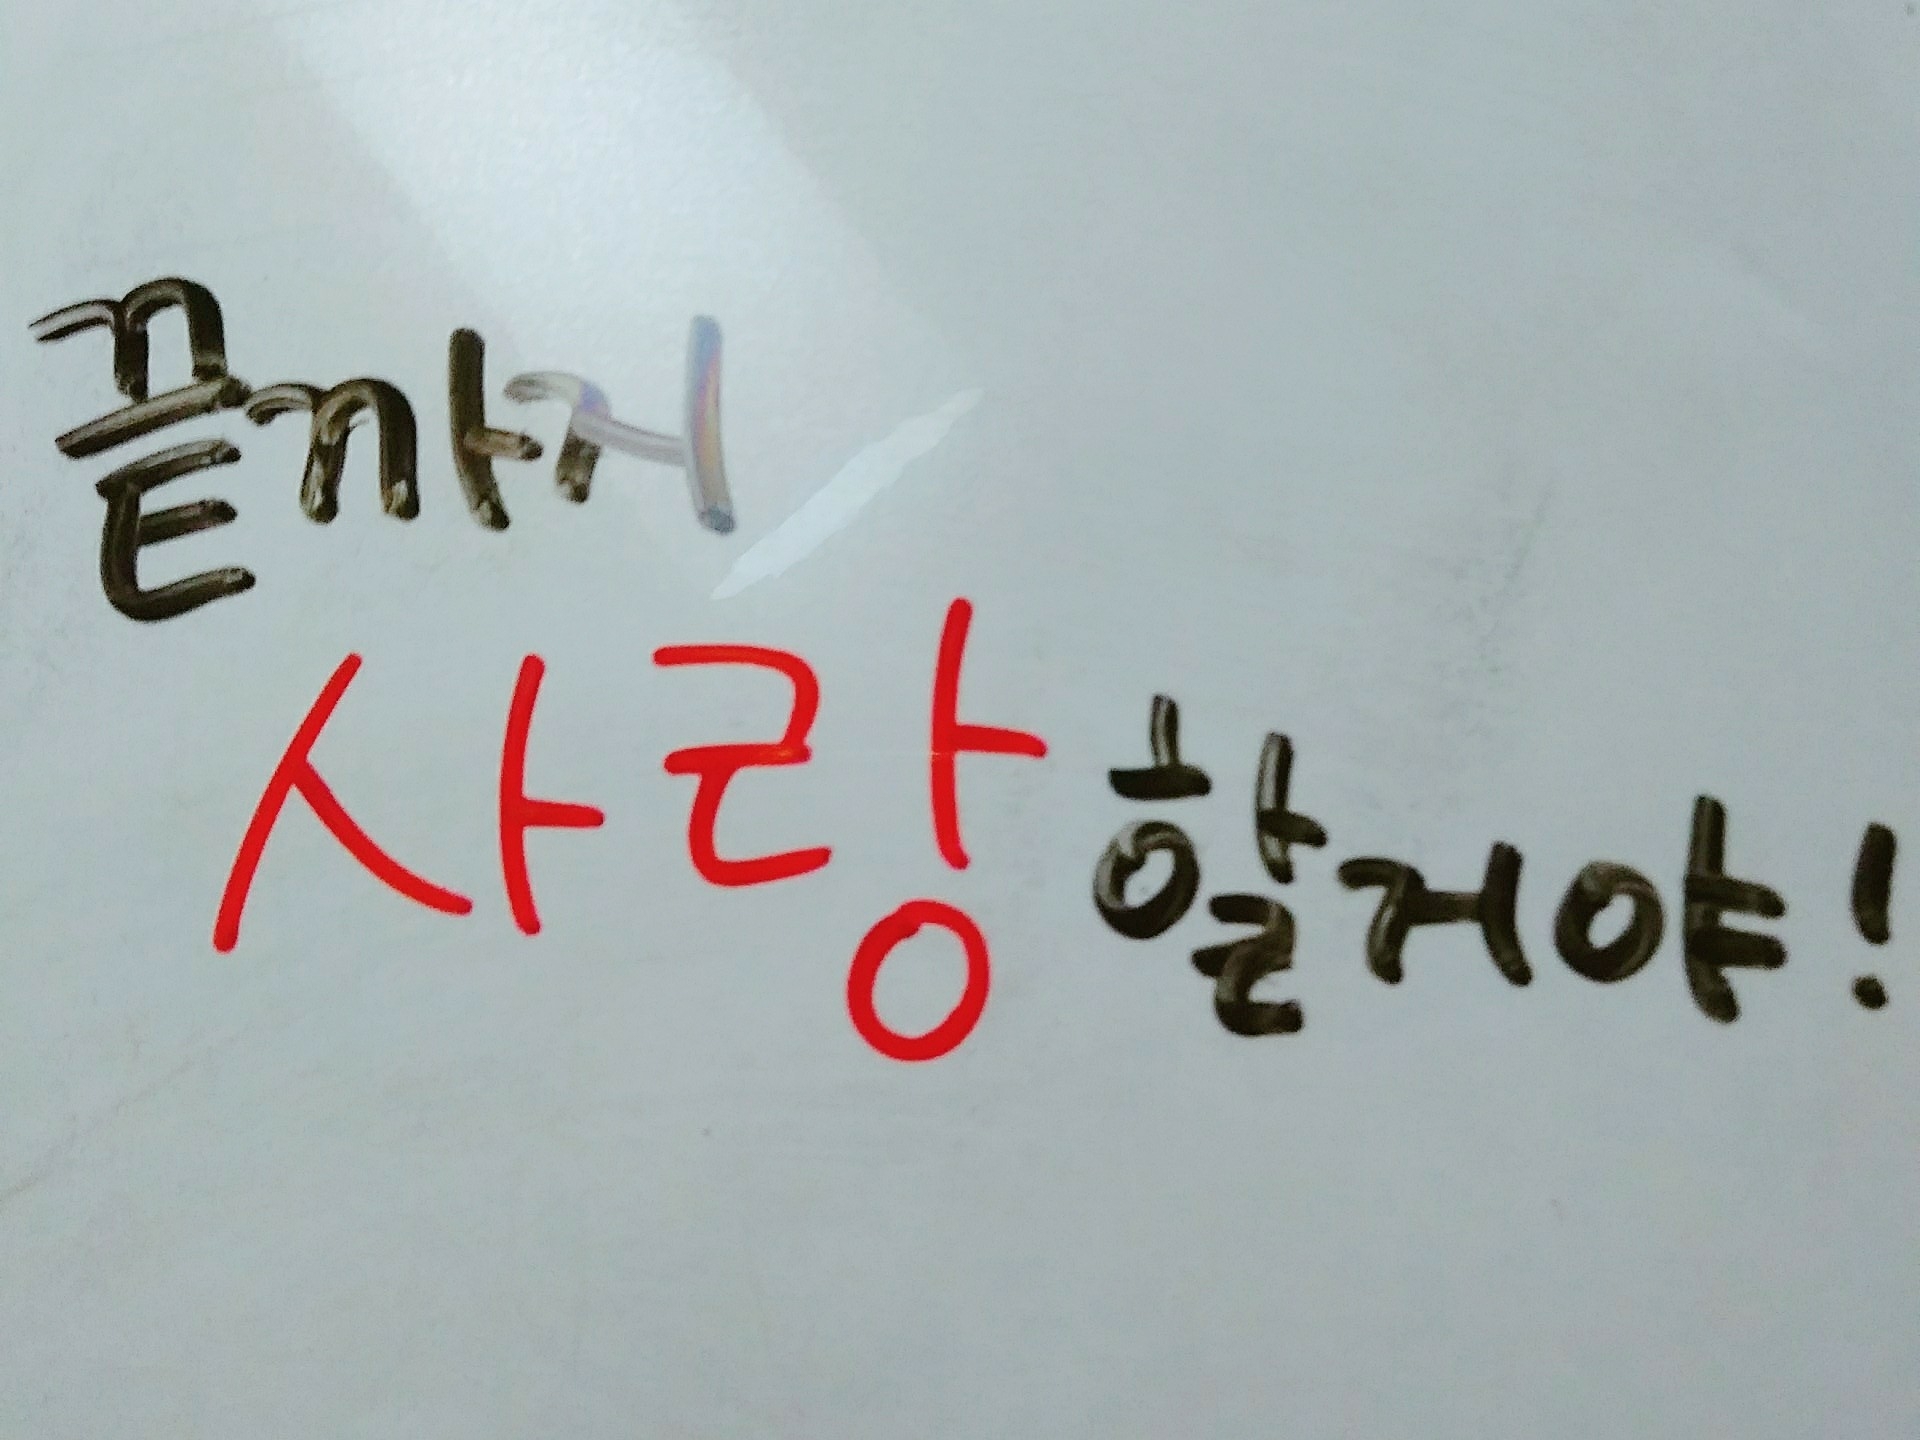 끝까지
사랑할거야!